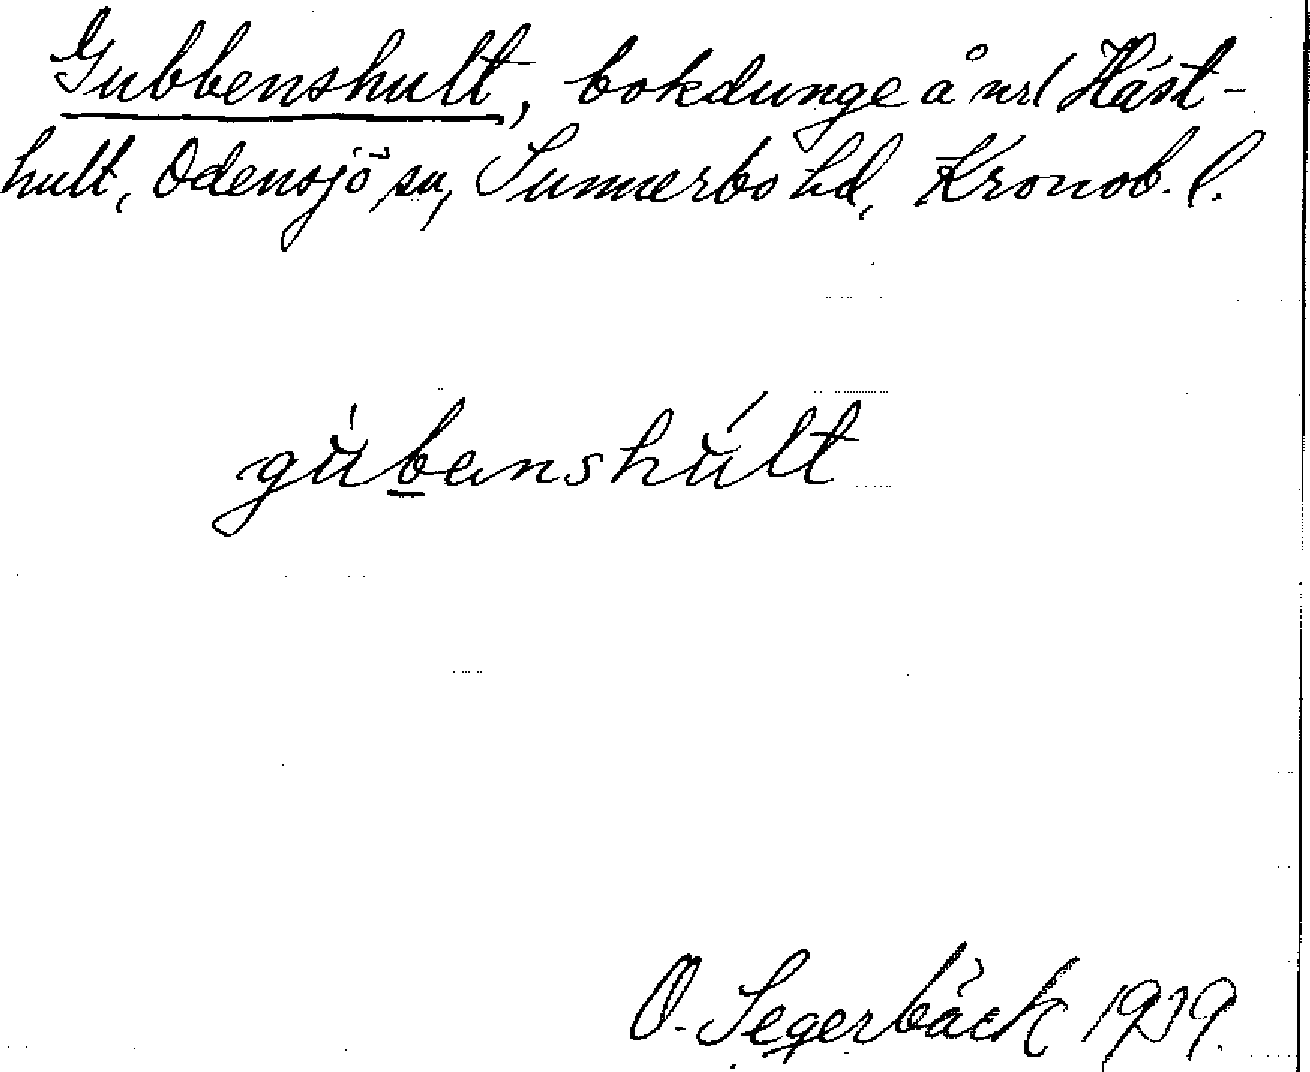 Gubbenshult, bokdunge å nr 1 Häst-
hult, Odensjö sn, Sunnerbo hd, Kronob. l.
gùbenshúlt
O. Segerbäck 1939.